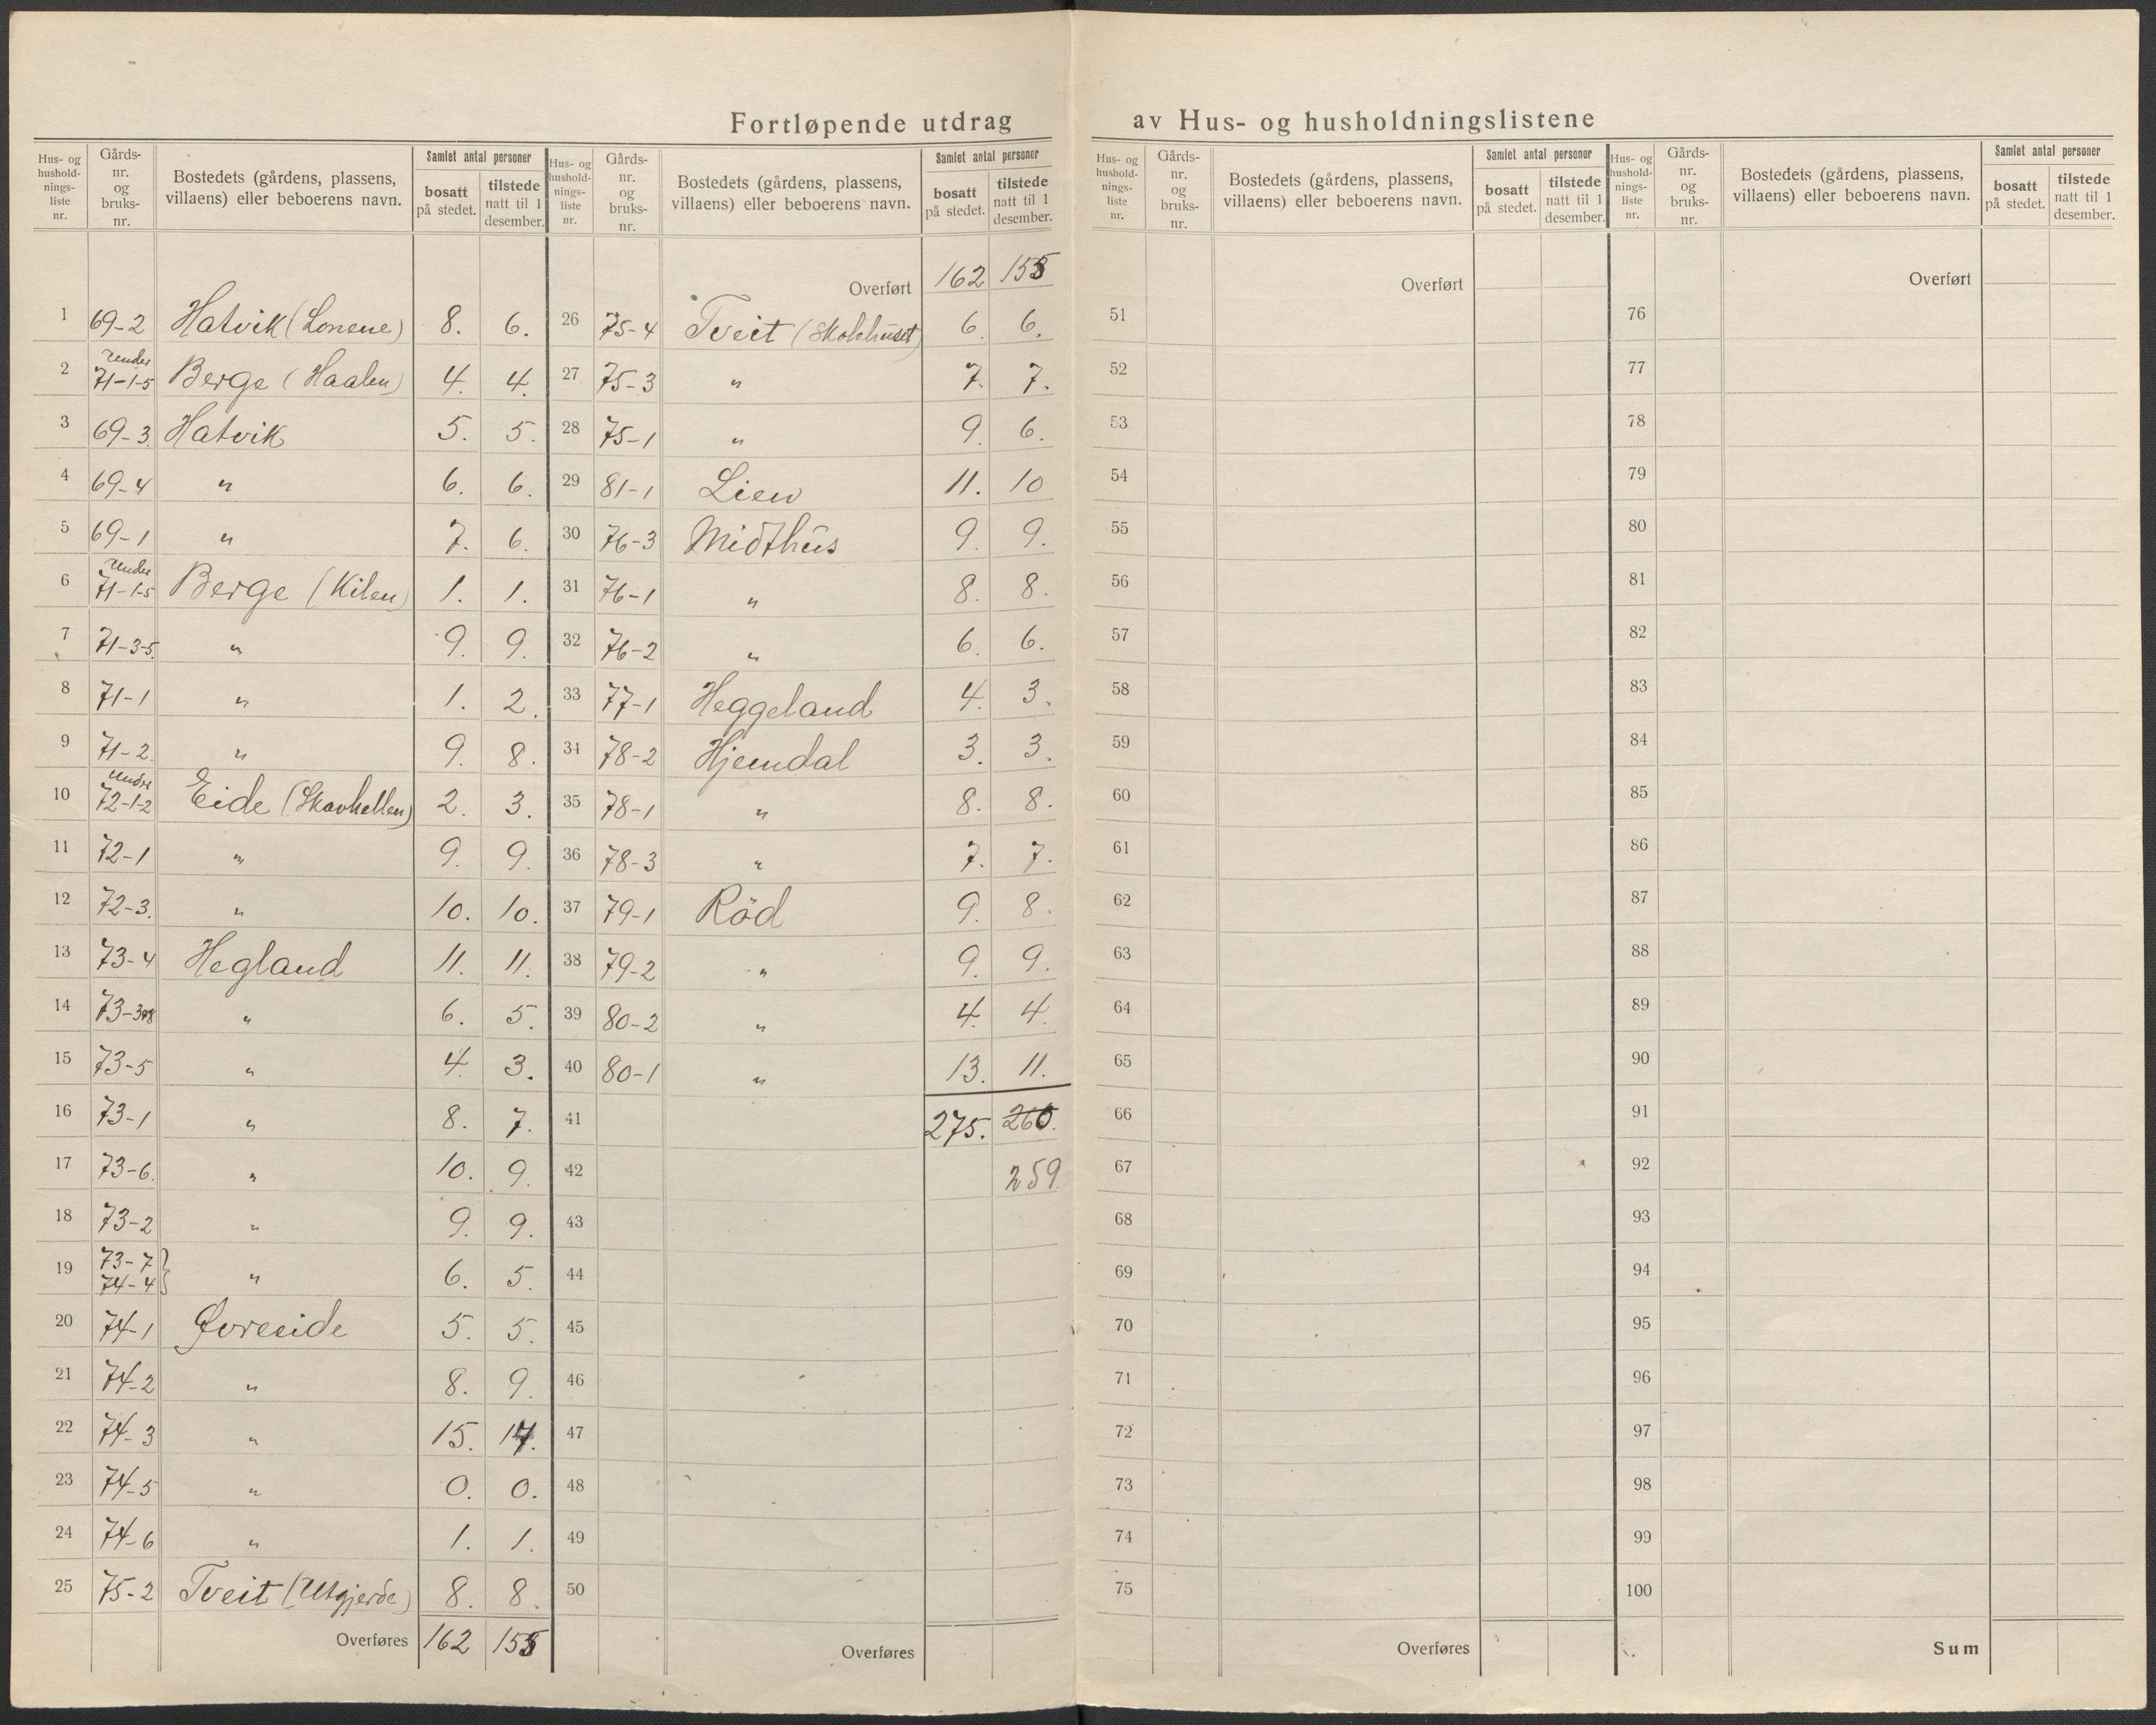 Fortløpende utdrag av Hus- og husholdningslistene
Hus- og hushold- nings- liste nr. Gårds- nr. og bruks- nr. Bostedets (gårdens, plassens, villaens) eller beboerens navn. Samlet antal personer bosatt på stedet. tilstede natt til 1 desember.
1 69-2 Hatvik (Lonene) 8. 6.
2 Under 71-1-5 Berge (Haalen) 4. 4.
3 69-3. Hatvik 5. 5.
4 69-4 " 6. 6.
5 69-1 " 7. 6.
6 Under 71-1-5 Berge (Kilen) 1. 1.
7 71-3-5. " 9. 9.
8 71-1 " 1. 2.
9 71-2. " 9. 8.
10 Under 72-1-2 Eide (Skavhellen) 2. 3.
11 72-1 " 9. 9.
12 72-3. " 10. 10.
13 73-4 Hegland 11. 11.
14 " 6. 5.
15 73-5 " 4. 3.
16 73-1 " 8. 7.
17 73-6. " 10. 9.
18 73-2 " 9. 9.
19 73-7 74-4 } " 6. 5.
20 74-1 Øvreeide 5. 5.
21 74-2 " 8. 9.
22 74-3 " 15. 14.
23 74-5 " 0. 0.
24 74-6 " 1. 1.
25 75-2 Tveit (Utgjerde) 8. 8.
Overføres 162 155
Hus- og hushold- nings- liste nr. Gårds- nr. og bruks- nr. Bostedets (gårdens, plassens, villaens) eller beboerens navn. Samlet antal personer bosatt på stedet. tilstede natt til 1 desember.
Overført 162 155
26 75-4 Tveit (Skolehuset) 6. 6.
27 75-3 " 7. 7.
28 75-1 " 9. 6.
29 81-1 Lien 11. 10
30 76-3 Midthus 9. 9.
31 76-1 " 8. 8.
32 76-2 " 6. 6.
33 77-1 Heggeland 4. 3.
34 78-2 Hjemdal 3. 3.
35 78-1 " 8. 8.
36 78-3 " 7. 7.
37 79-1 Röd 9. 8.
38 79-2 " 9. 9.
39 80-2 " 4. 4.
40 80-1 " 13. 11.
41 275. 260.
42 259
43
44
45
46
47
48
49
50
Overføres
Hus- og hushold- nings- liste nr. Gårds- nr. og bruks- nr. Bostedets (gårdens, plassens, villaens) eller beboerens navn. Samlet antal personer bosatt på stedet. tilstede natt til 1 desember.
Overført
51
52
53
54
55
56
57
58
59
60
61
62
63
64
65
66
67
68
69
70
71
72
73
74
75
Overføres
Hus- og hushold- nings- liste nr. Gårds- nr. og bruks- nr. Bostedets (gårdens, plassens, villaens) eller beboerens navn. Samlet antal personer bosatt på stedet. tilstede natt til 1 desember.
Overført
76
77
78
79
80
81
82
83
84
85
86
87
88
89
90
91
92
93
94
95
96
97
98
99
100
Sum